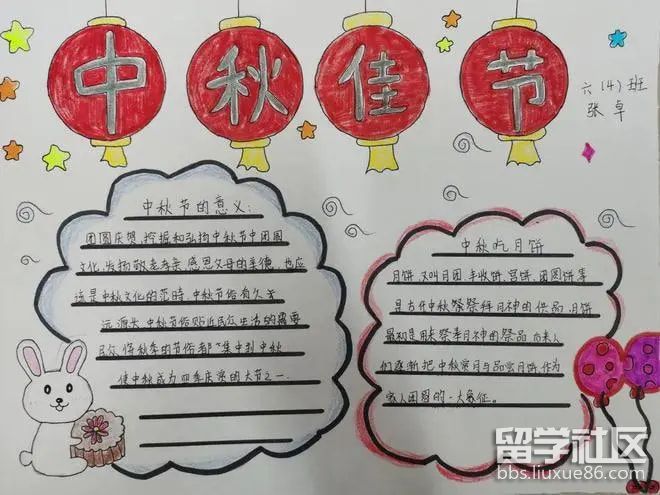 中秋佳节
六(4)班
张卓
中秋节的意义:
团圆庆贺,挖掘和弘扬中秋节中团圆
文化,发扬敬老孝亲,感恩父母的美德,也应
该是中秋文化的范畴,中秋节俗有久
远源头,中秋节俗贴近民众生活的需要
民众将秋季的节俗都"集中到中秋
使中秋成为四季庆赏的大节之一
中秋吃月饼
月饼,又叫月团、丰收饼、宫饼、团圆饼等
是古代中秋祭拜月神的供品,月饼
最初是用来祭奉月神的祭品,而来人
们逐渐把中秋赏月与品尝月饼,作为
家人团圆的一大象征。
留学社区
bbs.liuxue86.com